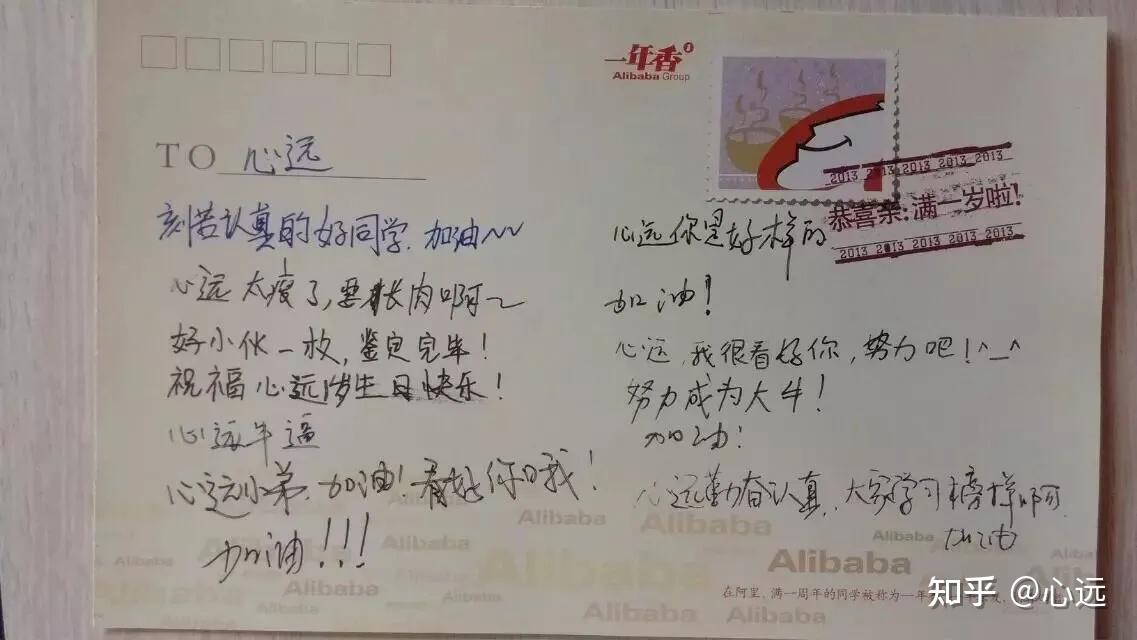 一年香
Alibaba Group
TO 心远
2013 2013 2013 2013 2013
恭喜亲:满一岁啦!
2013 2013 2013 2013 2013
刻苦认真的好同学,加油~~
心远太瘦了,要长肉啊~
好小伙一枚,鉴定完毕!
祝福心远1岁生日快乐!
心远牛逼
心远小弟,加油!看好你哦!
加油!!!
心远你是好样的
加油!
心远,我很看好你,努力吧!^_^
努力成为大牛!
加油!
心远勤奋认真,大家学习榜样啊
加油
Alibaba
在阿里,满一周年的同学被称为一年
知乎 @心远